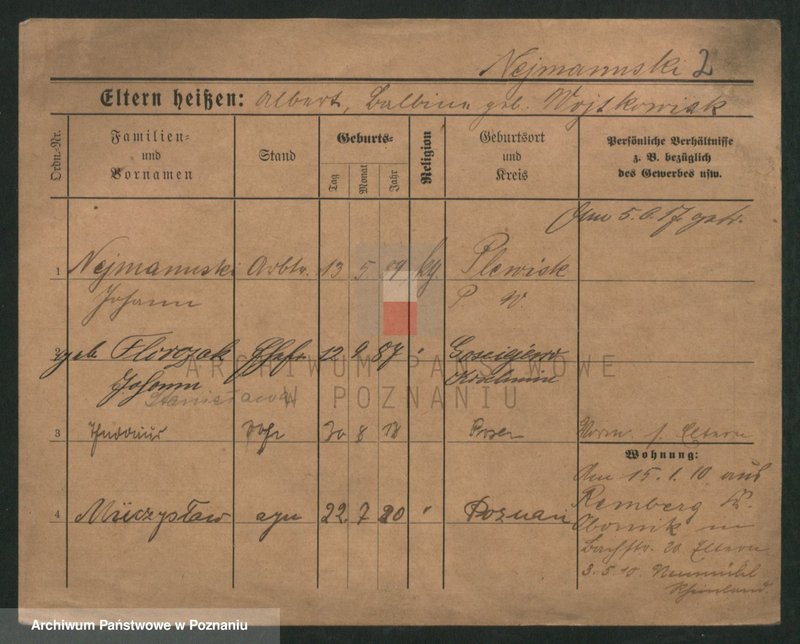 Nejmannski 2
Eltern heißen: Albert, Balbina geb. Wojtkowiak
Ordn.-Nr.
Familien- und Vornamen
Stand
Geburts-
Tag
Monat
Jahr
Religion
Geburtsort und Kreis
Persönliche Verhältnisse
z. B. bezüglich
des Gewerbes usw.
Am 5. 6. 17 getr.
1 Nejmannski Arbtr. 13 5 89 Plewisk
Johann P. W.
2 geb. Florczak Ehefr. 12 9 87
Johanna
Stanisława
3 30 8 18 Posen
Eltern
Wohnung:
Am 15. 1. 10 aus
4 Mieczysław syn 22. 7 20 Poznań
Remberg Kr.
Obornik in
Bachstr. 20 Eltern
3. 5. 10 Neumühl
Rheinland.
ARCHIWUM PAŃSTWOWE
W POZNANIU
Archiwum Państwowe w Poznaniu